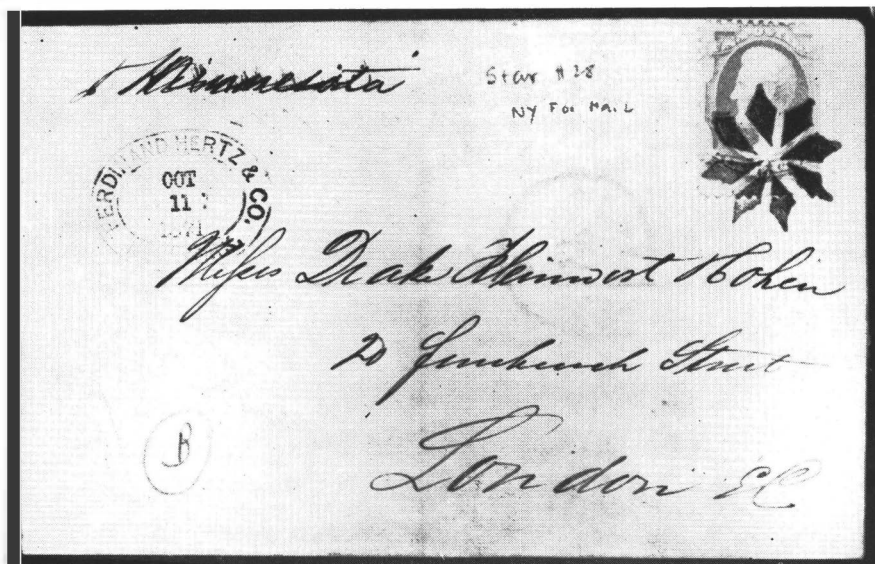 p Minnesota
Star #28
NY For Mail
FERDINAND HERTZ & CO.
OCT
11
1871
Messrs Drake Kleinwort & Cohen
20 Fenchurch Street
London EC
B